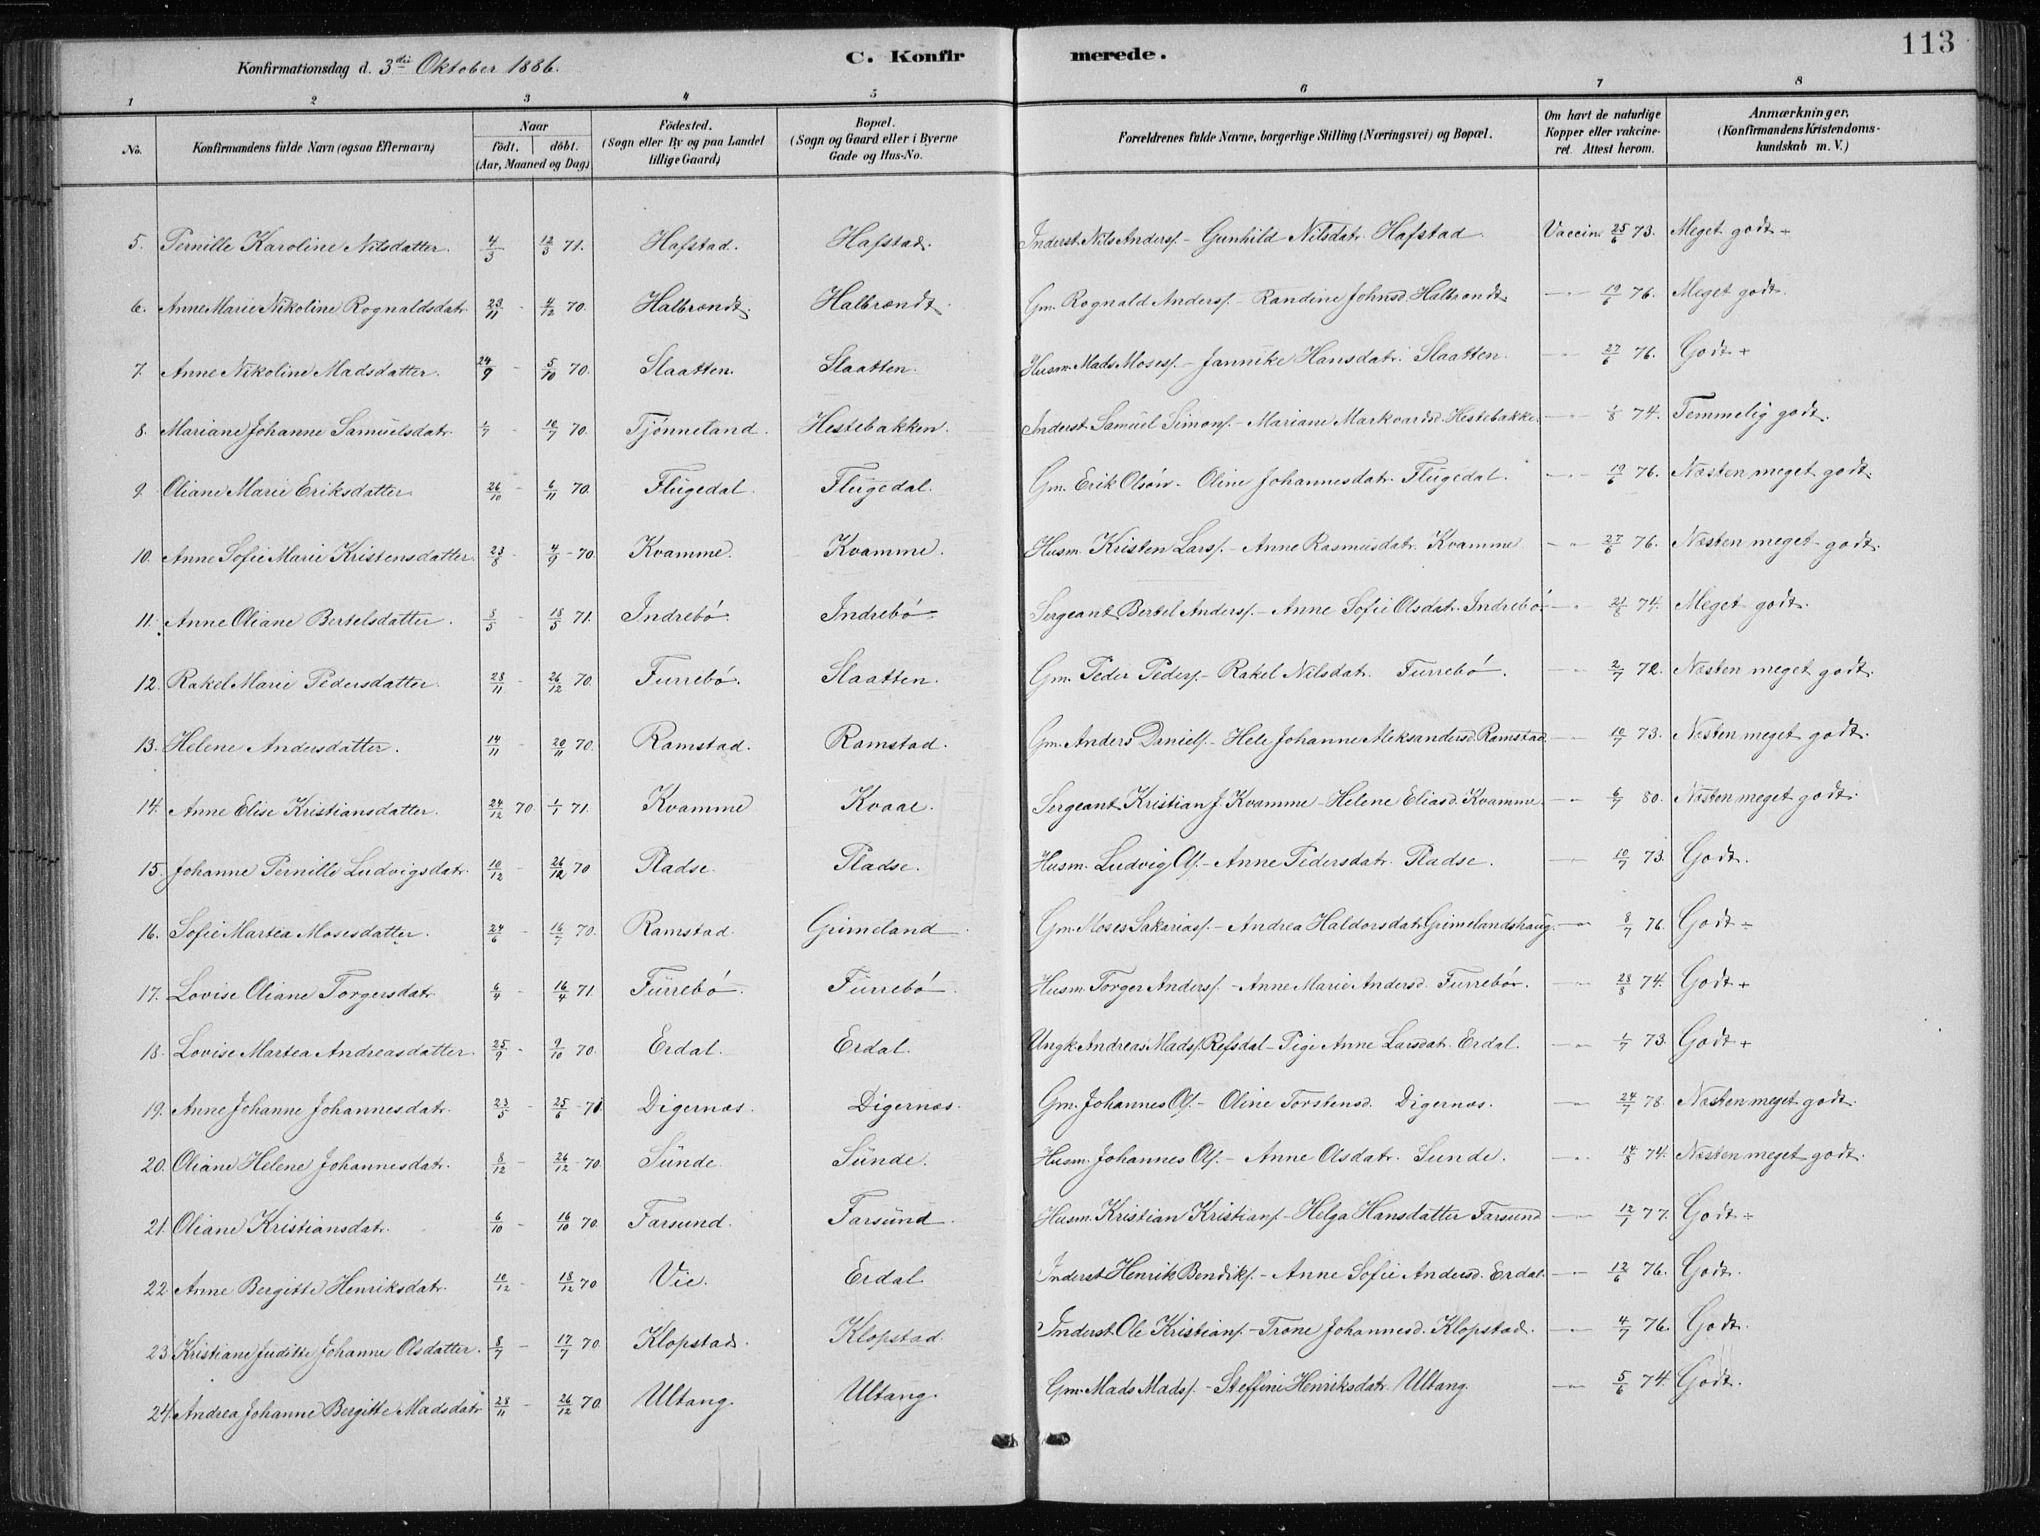 113
Konfirmationsdag d. 3die Oktober 1886. C. Konfirmerede.
1 2 3 4 5 6 7 8
No. Konfirmandens fulde Navn (ogsaa Efternavn) Naar födt. döbt. (Aar, Maaned og Dag) Födested. (Sogn eller By og paa Landet tillige Gaard) Bopæl. (Sogn og Gaard eller i Byerne Gade og Hus-No. Forældrenes fulde Navne, borgerlige Stilling (Næringsvei) og Bopæl. Om havt de naturlige Kopper eller vakcineret. Attest herom. Anmærkninger, (Konfirmandens Kristendomskundskab m. V.)
5. Pernille Karoline Nilsdatter. 4/3 12/3 71. Hafstad. Hafstad. Inderst. Nils Anders. - Gunhild Nilsdatr. Hafstad Vaccin. 25/6 73. Meget godt ÷
6. Anne Marie Nikoline Rognaldsdatr. 23/11 - 4/12 70. Halbrendt. Halbrendt. Gm. Rognald Anders. - Randine Johnsd. Halbrendt. 19/6 76. Meget godt.
7. Anne Nikoline Madsdatter. 24/9 - 5/10 70. Slaatten. Slaatten. Husm. Mads Moses. - Jannike Hansdatr. Slaatten. 27/6 76. Godt +
8. Mariane Johanne Samuelsdatr. 1/7 10/7 70. Tjønneland. Hestebakken. Inderst. Samuel Simons. - Mariane Markvardsd. Hestebakke. 1/8 74. Temmelig godt.
9. Oliane Marie Eriksdatter 26/10 - 6/11 70. Flugedal. Flugedal. Gm. Erik Olsøn. - Oline Johannesdatr. Flugedal. 19/6 76. Næsten meget godt.
10. Anne Sofie Marie Kristensdatter. 23/8 - 4/9 - 70. Kvamme. Kvamme. Husm. Kristen Lars. - Anne Rasmusdatr. Kvamme 27/6 76. Næsten meget godt.
11. Anne Oliane Bertelsdatter. 8/5 - 18/5 71. Indrebø. Indrebø. Sergeant Bertel Anders. - Anne Sofie Olsdatr. Indrebø 21/8 74. Meget godt.
12. Rakel Marie Pedersdatter. 28/11 - 26/12 70. Furrebø. Slaatten. Gm. Peder Peders. - Rakel Nilsdatr. Furrebø. 2/7 72. Næsten meget godt.
13. Helene Andersdatter. 14/11 - 20/11 70. Ramstad. Ramstad. Gm. Anders Daniels. - Hele Johanne Aleksandersd. Ramstad 10/7 73. Næsten meget godt.
14. Anne Elise Kristiansdatter. 24/12 70. 1/1 71. Kvamme Kvaae. Sergeant Kristian J. Kvamme - Helene Eliasd. Kvamme. 6/7 80. Næsten meget godt.
15. Johanne Pernille Ludvigsdatr. 10/12 - 26/12 70 Pladse. Pladse. Husm. Ludvig Ols. - Anne Pedersdatr. Pladse. 10/7 73. Godt.
16. Sofie Martea Mosesdatter. 24/6 - 16/7 70. Ramstad. Grimeland. Gm. Moses Sakarias. - Andrea Haldorsdatr. Grimelandshaug. 8/7 76. Godt ÷
17. Lovise Oliane Torgersdatr. 6/4 - 16/4 71. Furrebø. Furrebø. Husm. Torger Anders. - Anne Marie Andersd. Furrebø. 28/8 74. Godt +
18. Lovise Martea Andreasdatter. 25/9 - 9/10 70. Erdal. Erdal. Ungk. Andreas Mads. Refsdal - Pige Anne Larsdatr. Erdal. 1/7 73. Godt +
19. Anne Johanne Johannesdatr. 23/5 - 25/6 - 71. Digernæs. Digernæs. Gm. Johannes Ols. - Oline Torstensd. Digernæs. 24/7 78. Næsten meget godt.
20. Oliane Helene Johannesdatr. 8/12 - 26/12 - 70. Sunde. Sunde. Husm. Johannes Ols. - Anne Olsdatr. Sunde. 14/8 74. Næsten meget godt.
21. Oliane Kristiansdatr. 6/10 - 16/10 70. Farsund. Farsund. Husm. Kristian Kristians. - Helga Hansdatter Farsund 12/7 77. Godt ÷
22. Anne Bergitte Henriksdatr. 10/12 - 18/12 70 Vie. Erdal Inderst. Henrik Bendiks. - Anne Sofie Andersd. Erdal. 12/6 76. Godt.
23. Kristiane Juditte Johanne Olsdatter. 8/7 - 17/7 70. Klopstad. Klopstad. Inderst. Ole Kristians. - Trone Johannesd. Klopstad. 4/7 76. Godt.
24. Andrea Johanne Bergitte Madsdatr. 28/11 - 26/12 70. Ultang. Ultang. Gm. Mads Mads. - Steffine Henriksdatr. Ultang. 5/6 74. Godt.